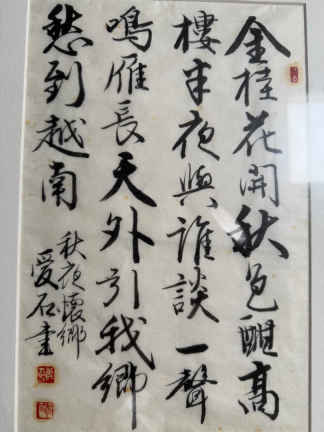 金桂花開秋色酣高
樓半夜與誰談一聲
鳴雁長天外引我鄉
愁到越南
秋夜懷鄉
愛石書